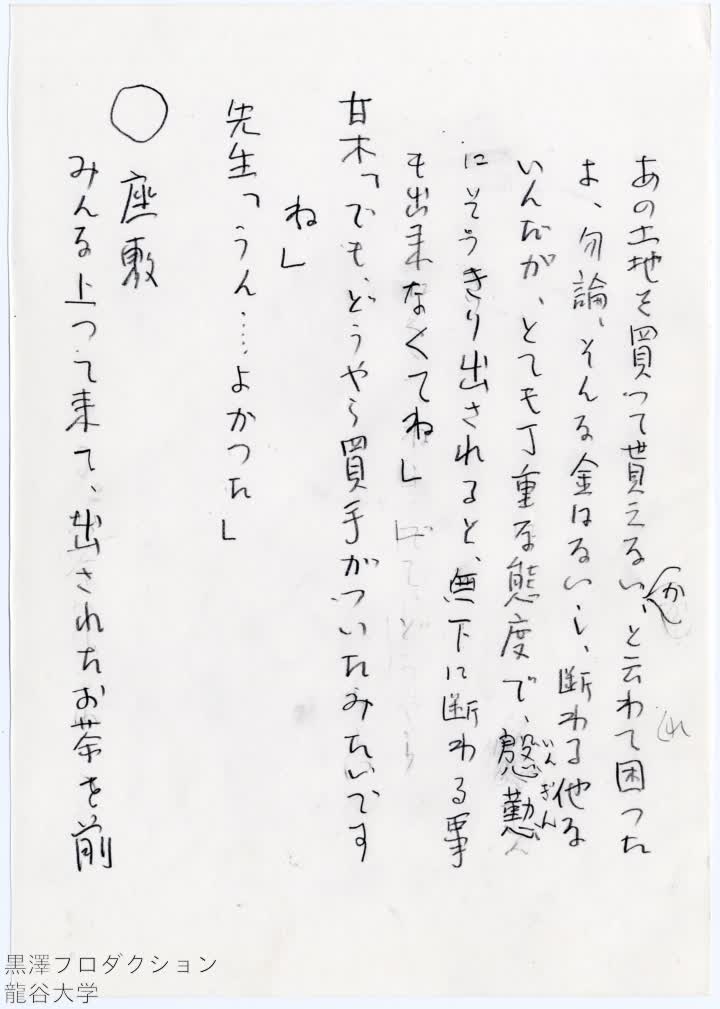 あの土地を買つて貰えないか、と云われて困つた
よ、勿論、そんな金はないし、断わる他な
いんだが、とても丁重な態度で、慇懃
いんぎん
にそうきり出されると、無下に断わる事
も出来なくてね」
甘木「でも、どうやら買手がついたみたいです
ね」
先生「うん……よかつた」
○ 座敷
みんな上つて来て、出されたお茶を前
黒澤プロダクション
龍谷大学